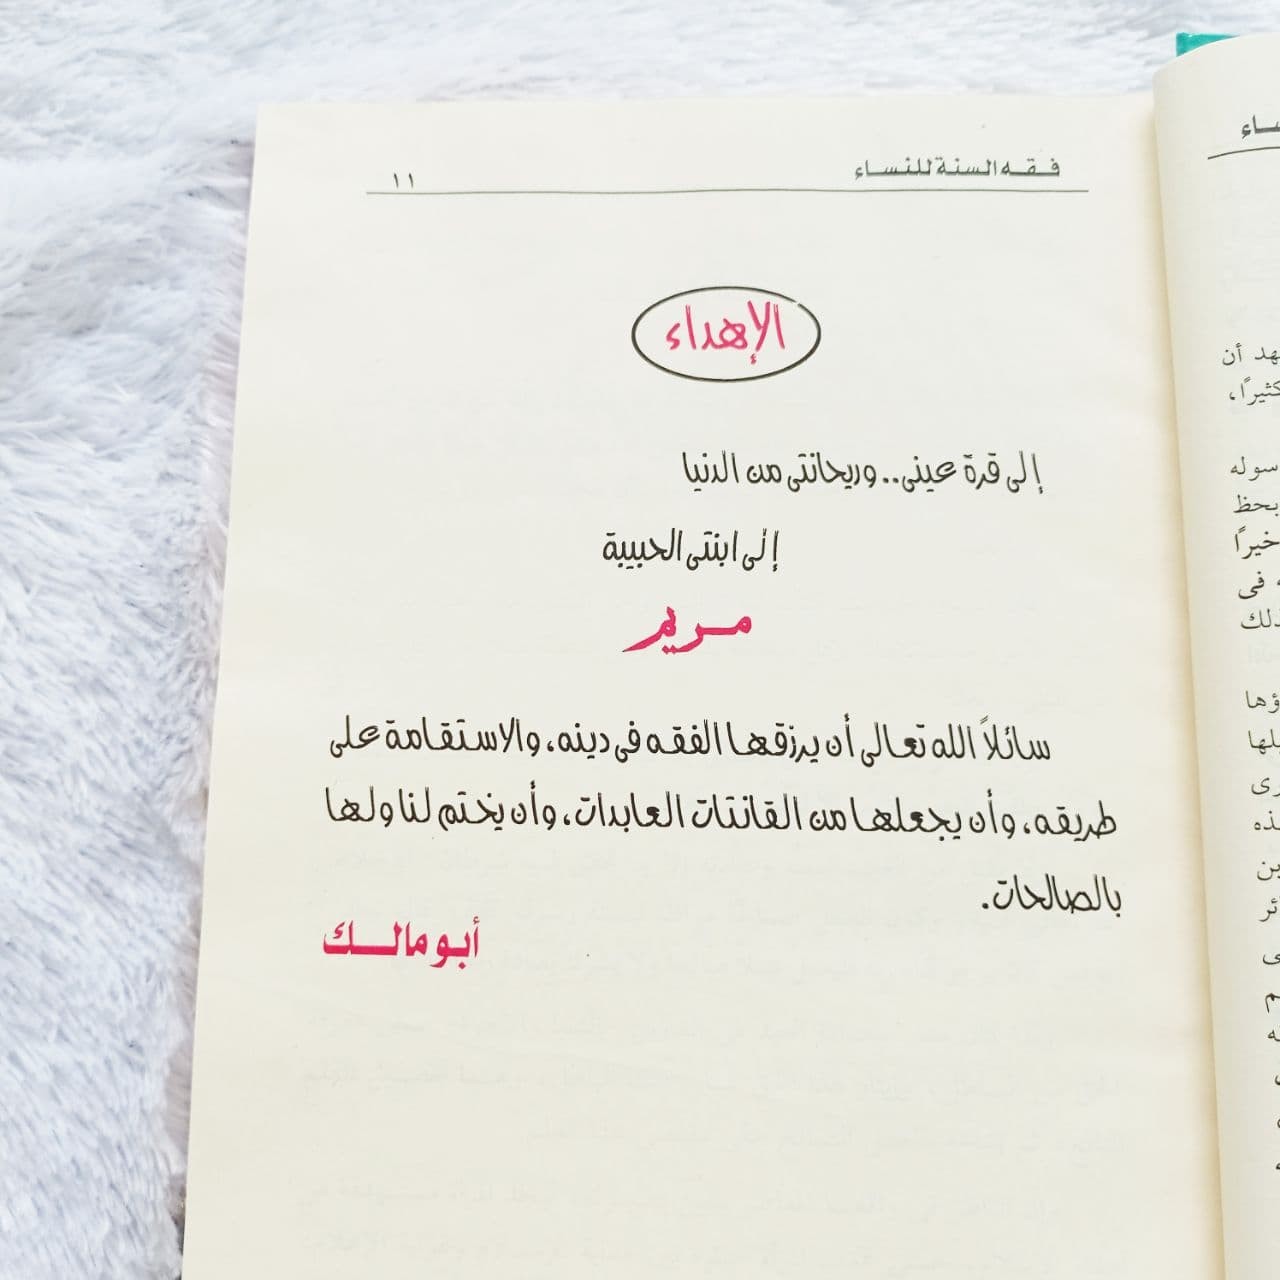 فقه السنة للنساء ١١
الإهداء
إلى قرة عينى.. وريحانتى من الدنيا
إلى ابنتى الحبيبة
مريم
سائلاً الله تعالى أن يرزقها الفقه فى دينه، والاستقامة على
طريقه، وأن يجعلها من القانتات العابدات، وأن يختم لنا ولها
بالصالحات.
أبو مالك
أن
كثيرًا،
سوله
بحظ
خيرًا
فى